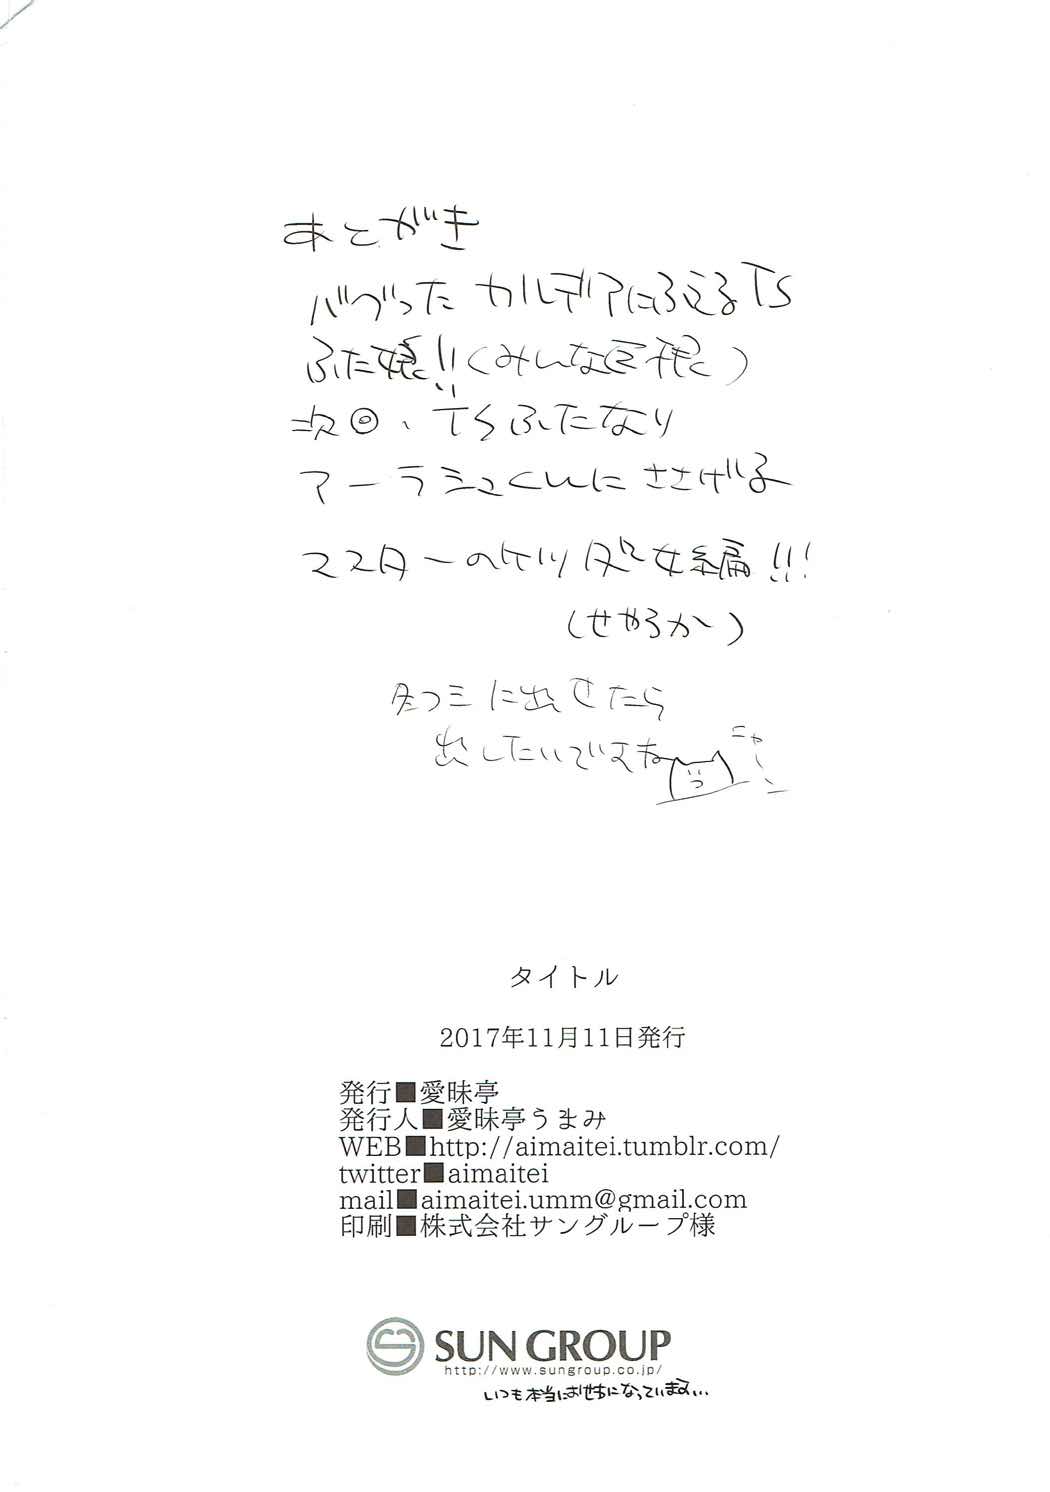 あとがき
バグったカルデアにふえるTS
ふた娘!!(みんな巨根)
次回、TSふたなり
アーラシュくんにささげる
マスターのケツ処女編!!!
(せやろか)
冬コミに出せたら
出したいですね
ニャーン
タイトル
2017年11月11日発行
発行■愛昧亭
発行人■愛昧亭うまみ
WEB■http://aimaitei.tumblr.com/
twitter■aimaitei
mail■aimaitei.umm@gmail.com
印刷■株式会社サングループ様
SUN GROUP
http://www.sungroup.co.jp/
いつも本当にお世ちになっています...